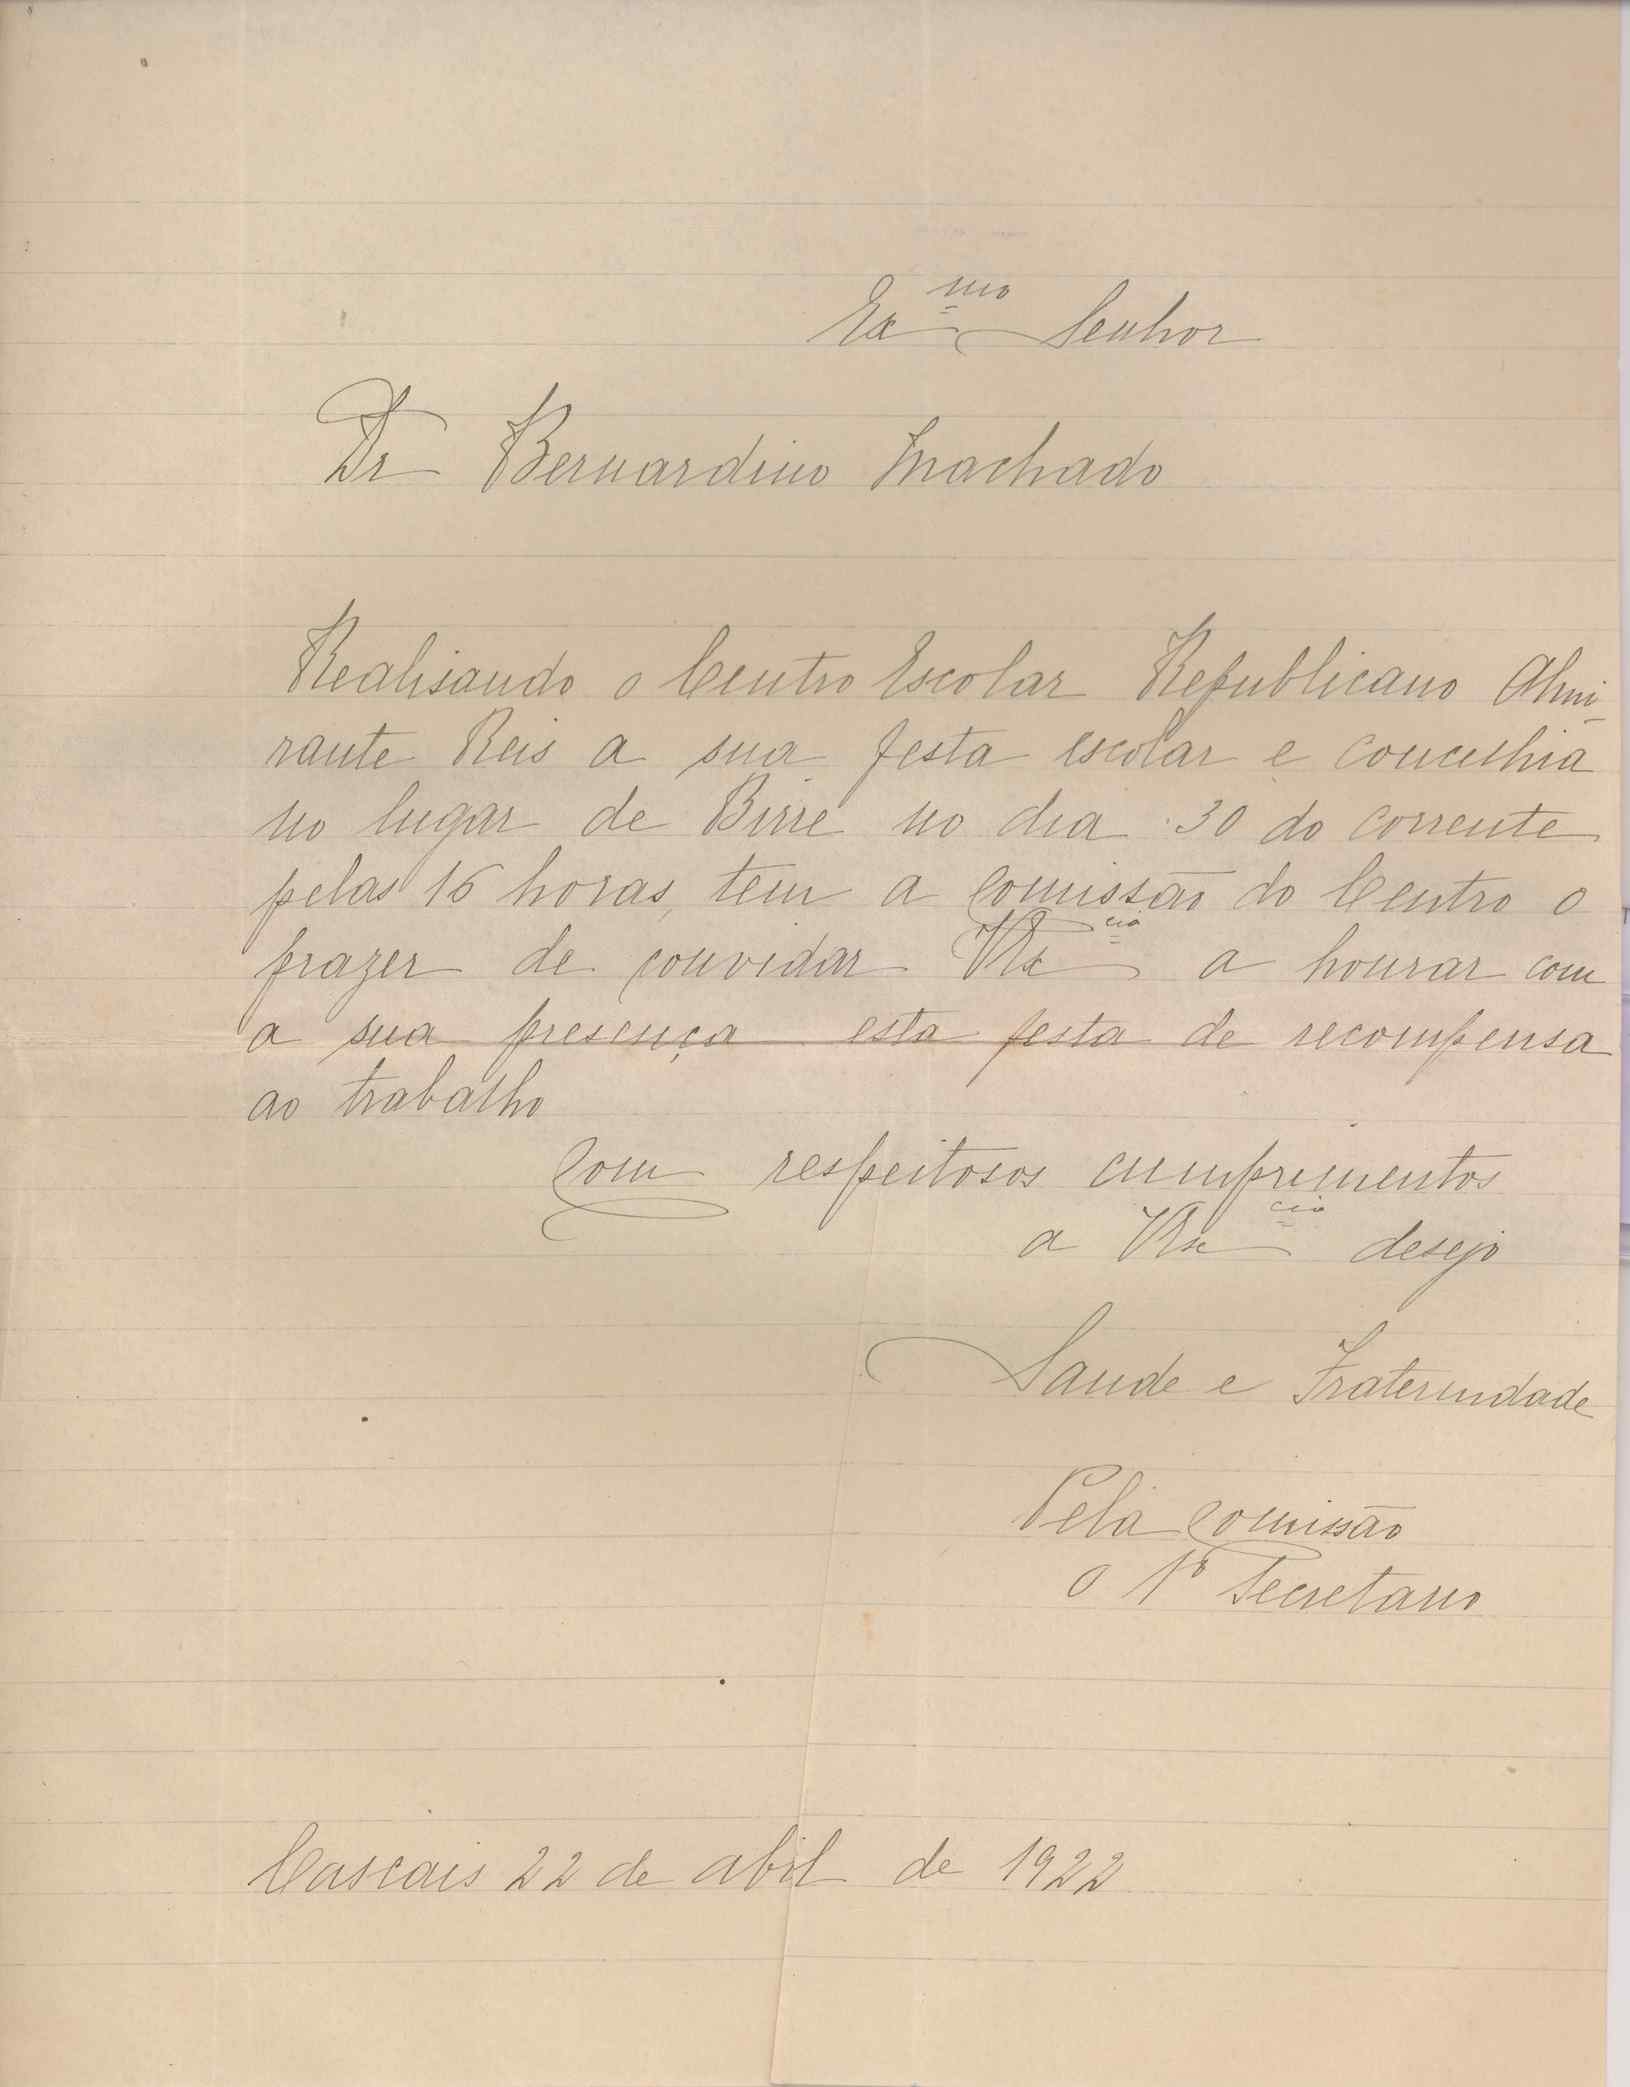 Exmo Senhor
Dr Bernardino Machado
Realisando o Centro Escolar Republicano Almi-
rante Reis a sua festa escolar e concelhia
no lugar de Birre no dia 30 do corrente
pelas 16 horas, tem a Comissão do Centro o
prazer de convidar V Excia a honrar com
a sua presença esta festa de recompensa
ao trabalho
Com respeitosos cumprimentos
a V Excia desejo
Saude e Fraternidade
Pela Comissão
O 1º Secretario
Cascais 22 de abil de 1922